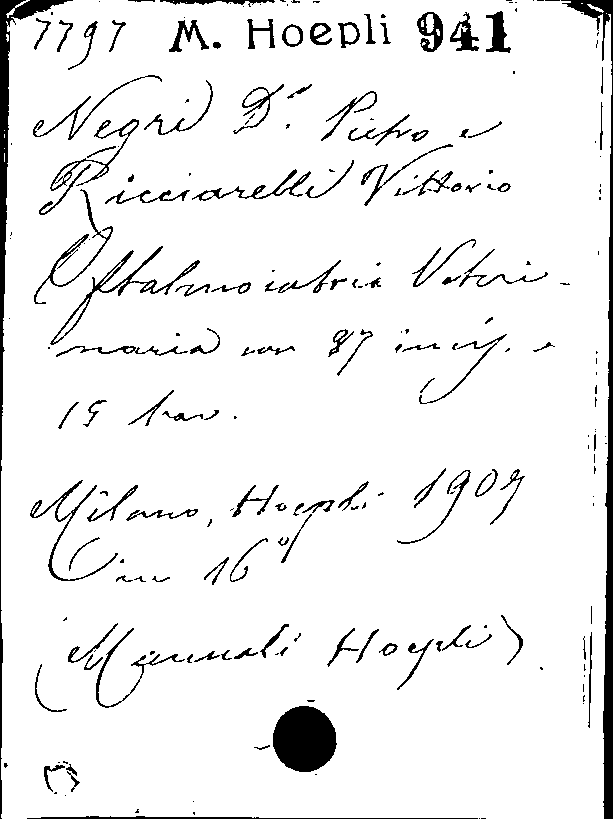 7797 M. Hoepli 941
Negri Dr. Pietro e
Ricciarelli Vittorio
Oftalmoiatria Veteri-
naria con 87 incis. e
15 tav.
Milano, Hoepli 1907
in 16°
(Manuali Hoepli)